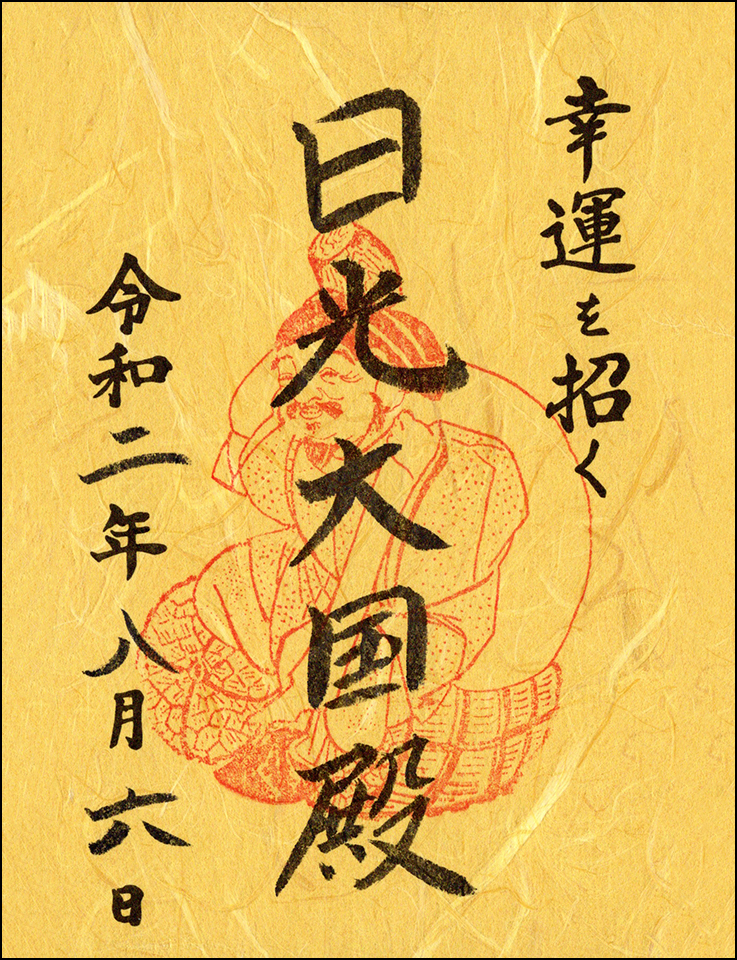 幸運を招く
日光大国殿
令和二年八月六日